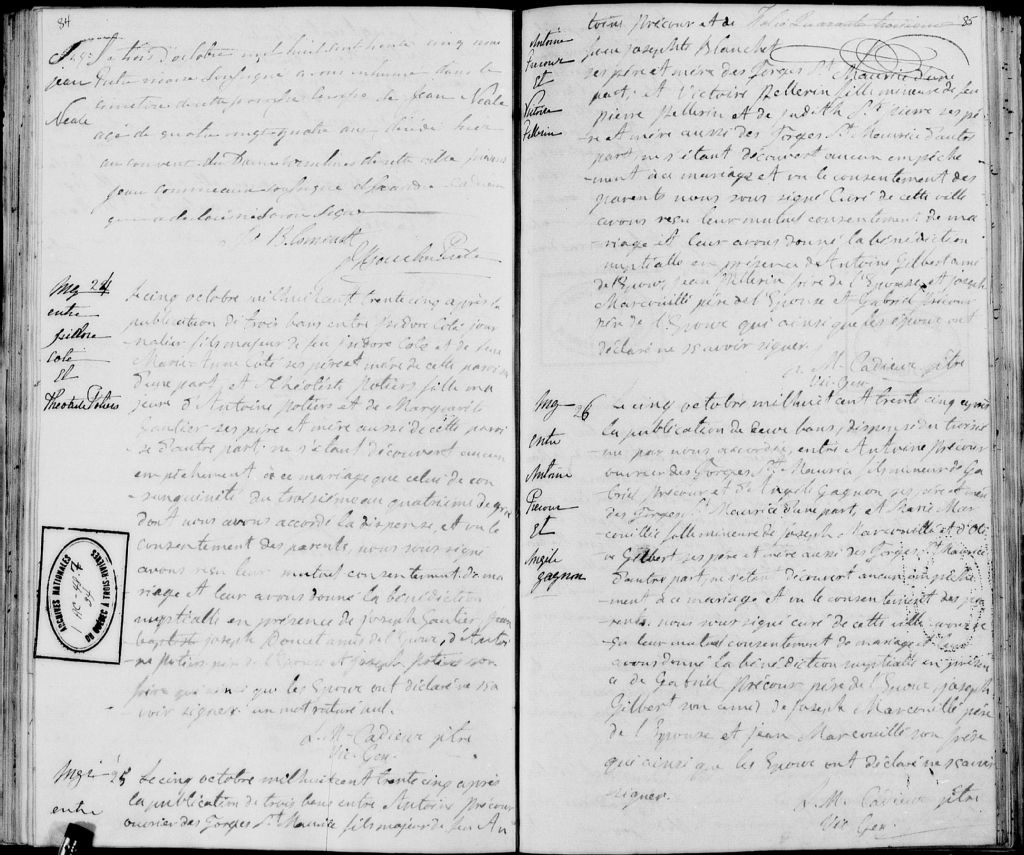 84
Le trois d'octobre mil huit cent trente cinq nous
jean
Prêtre soussigné avons inhumé dans le
cimetière de cette paroisse le corps de Jean Neale
Neale
agé de quatre vingt quatre ans décédé hier
au couvent des Dames Ursulines de cette ville présens
soussigné
Curé
Mg 24
entre
Isidore
Coté
Et
Theotiste Potiers
Le cinq octobre mil huit cent trente cinq après la
publication de trois bans entre Isidore Coté jour
nalier fils majeur de feu isidore Coté et de feue
Marie-Anne Coté ses père et mère de cette paroisse
d'une part, et Théotiste Potiers fille ma
jeure d'Antoine Potiers et de Marguerite
Gautier ses père et mère aussi de cette paroi
sse d'autre part; ne s'étant découvert aucun
empêchement à ce mariage que celui de con
sanguinité du troisième au quatrième degré
dont nous avons accordé la dispense, et vu le
consentement des parents, nous sous signé
avons reçu leur mutuel consentement de ma
riage et leur avons donné la bénédiction
nuptialle en présence de Joseph Gautier, jean
joseph Doucet amis de l'Epoux, d'Antoi
ne Potiers père de l'Epouse et joseph Potiers son
frère qui ainsi que les Epoux ont déclaré ne sa
voir signer un mot raturé nul.
L. M. Cadieux ptre
Vic-Gen.
ARCHIVES NATIONALES
DU QUÉBEC À TROIS-RIVIÈRES
Mg 25
entre
Le cinq octobre mil huit cent trente cinq après
la publication de trois bans entre Antoine Précour
ouvrier des Forges St. Maurice fils majeur de feu An
85
toine Précour et de
Folio Quarante troisième
Antoine
Precour
Et
Victoire
Pellerin
feue josephte Blanchet
ses père et mère des Forges St. Maurice d'une
part; et Victoire Pellerin fille mineure de feu
pierre Pellerin et de judith St. pierre ses pè
re et mère aussi des Forges St. Maurice d'autre
part, ne s'étant découvert aucun empêche
ment à ce mariage et vu le consentement des
parents nous sous signé Curé de cette ville
avons reçu leur mutuel consentement de ma
riage et leur avons donné la bénédiction
nuptialle en présence de Antoine Gilbert ami
de l'Epoux, jean Pellerin frère de l'Epouse, et joseph
Marcouillé père de l'Epouse et Gabriel Précour
de l'Epoux qui ainsi que les époux ont
déclaré ne savoir signer.
L. M. Cadieux ptre
Vic-Gen.
Mg 26
entre
Antoine
Precour
Et
Angele
gagnon
Le cinq octobre mil huit cent trente cinq après
la publication de deux bans, dispense du troisiè
me par nous accordée, entre Antoine Précour
ouvrier des Forges St. Maurice fils mineur de Ga
briel Précour et d'Angele Gagnon ses père et mère
des Forges St. Maurice d'une part, et Marie Mar
couillé fille mineure de Joseph Marcouillé et d'
Gilbert ses père et mère aussi des Forges St. Maurice
d'autre part, ne s'étant découvert aucun empêche
ment à ce mariage et vu le consentement des pa
rents nous sous signé curé de cette ville avons re
çu leur mutuel consentement de mariage et
avons donné la bénédiction nuptialle en présen
ce de Gabriel Précour père de l'Epoux, joseph
Gilbert son ami, de Joseph Marcouillé père
de l'Epouse et jean Marcouillé son frère
qui ainsi que les Epoux ont déclaré ne savoir
signer.
L. M. Cadieux ptre
Vic Gen.